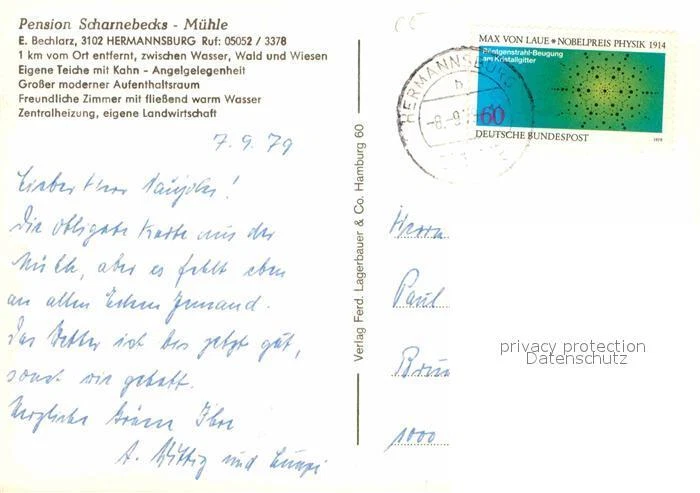 Pension Scharnebecks - Mühle
E. Bechlarz, 3102 HERMANNSBURG Ruf: 05052 / 3378
1 km vom Ort entfernt, zwischen Wasser, Wald und Wiesen
Eigene Teiche mit Kahn - Angelgelegenheit
Großer moderner Aufenthaltsraum
Freundliche Zimmer mit fließend warm Wasser
Zentralheizung, eigene Landwirtschaft
7.9.79
Lieber Herr
Die obligate Karte aus der
Mühle, aber es fehlt eben
an allen Ecken Jemand.
Das Wetter ist bis jetzt gut,
sonst wie gehabt.
Herzliche Grüße Ihre
A. Wittig und
Verlag Ferd. Lagerbauer & Co. Hamburg 60
MAX VON LAUE * NOBELPREIS PHYSIK 1914
Röntgenstrahl-Beugung
am Kristallgitter
60
DEUTSCHE BUNDESPOST
1979
HERMANNSBURG
b
-8.-9.
Herrn
Paul
1000
privacy protection
Datenschutz